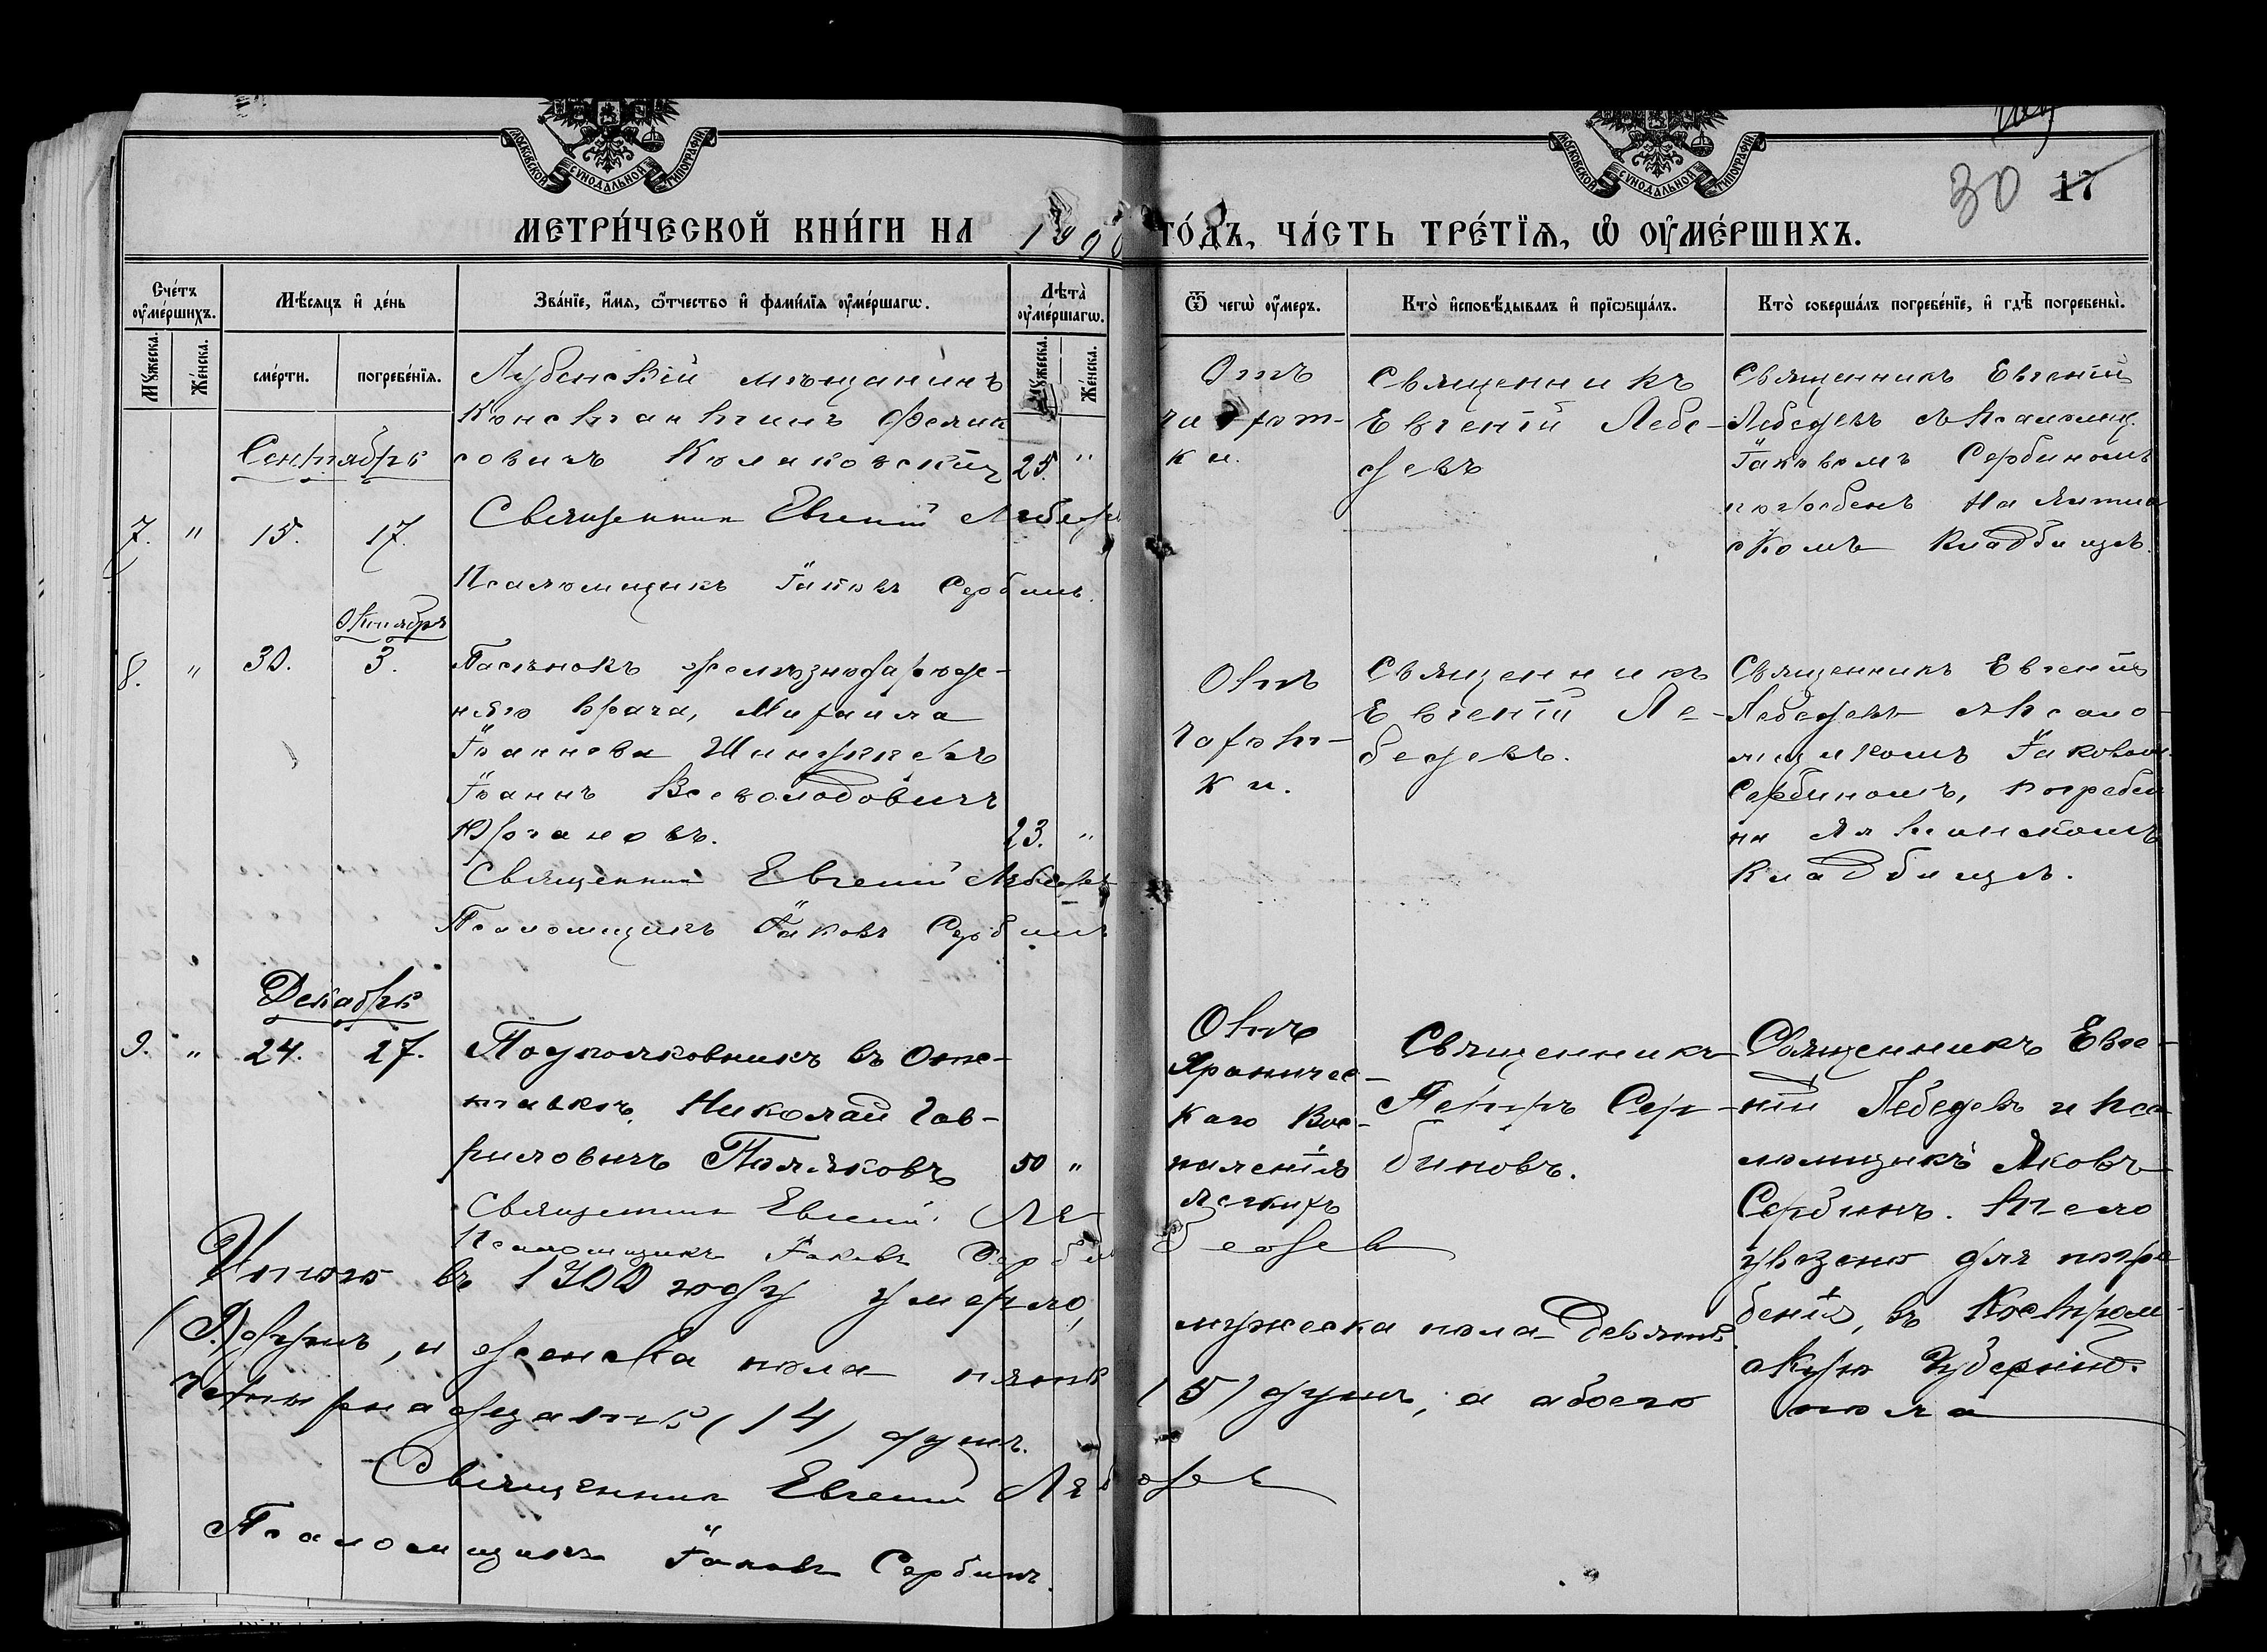 МОСКОВСКОЙ СѴНОДАЛЬНОЙ ТИПОГРАФІИ
МОСКОВСКОЙ СѴНОДАЛЬНОЙ ТИПОГРАФІИ
30 17
МЕТРИ́ЧЕСКОЙ КНИ́ГИ НА 1900 ГО́ДЪ, ЧА́СТЬ ТРЕ́ТЇѦ, Ѡ҆ ОУ҆МЕ́РШИХЪ.
Сче́тъ оу҆ме́ршихъ.
Мꙋ́жеска.
Же́нска.
Мѣ́сяцъ и҆ де́нь
сме́рти.
погребе́нїѧ.
Зва́нїе, и҆́мѧ, ѻ҆́тчество и҆ фами́лїѧ оу҆ме́ршагѡ.
Лѣ́та оу҆ме́ршагѡ.
Мꙋ́жеска.
Же́нска.
Ѿ чегѡ̀ оу҆́меръ.
Кто̀ и҆сповѣ́дывалъ и҆ прїѡбща́лъ.
Кто̀ соверша́лъ погребе́нїе, и҆ гдѣ̀ погребены̀.
Сентябрь
7. " 15. 17.
Лубенскій мѣщанинъ
Константинъ Феликсовичъ
25. "
Священник Евгеній Лебедев
Псаломщикъ Іаковъ Сербинъ.
Отъ
чахот-
ки.
Священникъ
Евгеній Лебе-
девъ
Священникъ Евгеній
Лебедевъ съ псаломщ.
Іаковомъ Сербиномъ
погребенъ на
скомъ кладбищѣ.
Октября
8. " 30. 3.
Пасынокъ желѣзнодорож-
наго врача, Михаила
Іоаннова
Іоаннъ Всеволодовичъ
Юргановъ.
23. "
Священник Евгеній Лебедевъ
Псаломщикъ Іаковъ Сербинъ
Отъ
чахот-
ки.
Священникъ
Евгеній Ле-
бедевъ.
Священникъ Евгеній
Лебедевъ съ псало-
мщикомъ Іаковомъ
Сербиномъ, погребен
на Ялтинскомъ
кладбищѣ.
Декабрь
9. " 24. 27.
Подполковникъ въ отс-
тавкѣ, Николай Гав-
риловичъ Поляковъ
50 "
Священник Евгеній Лебедев
Псаломщикъ Іаковъ Сербин
Отъ
Хроничес-
каго вос-
паленія
легкихъ
Священникъ
Петръ Сер-
биновъ.
Священникъ Евге-
ній Лебедевъ и пса-
ломщикъ Яковъ
Сербинъ. тѣло
увезено для погре-
бенія, въ Костром-
скую Губернію.
Итого въ 1900 году умерло, мужеска пола девять
(9) душъ, и женска пола пять (5) душъ, а обоего пола
четырнадцать (14) душъ.
Священник Евгеній Лебедев
Псаломщикъ Іаковъ Сербинъ.